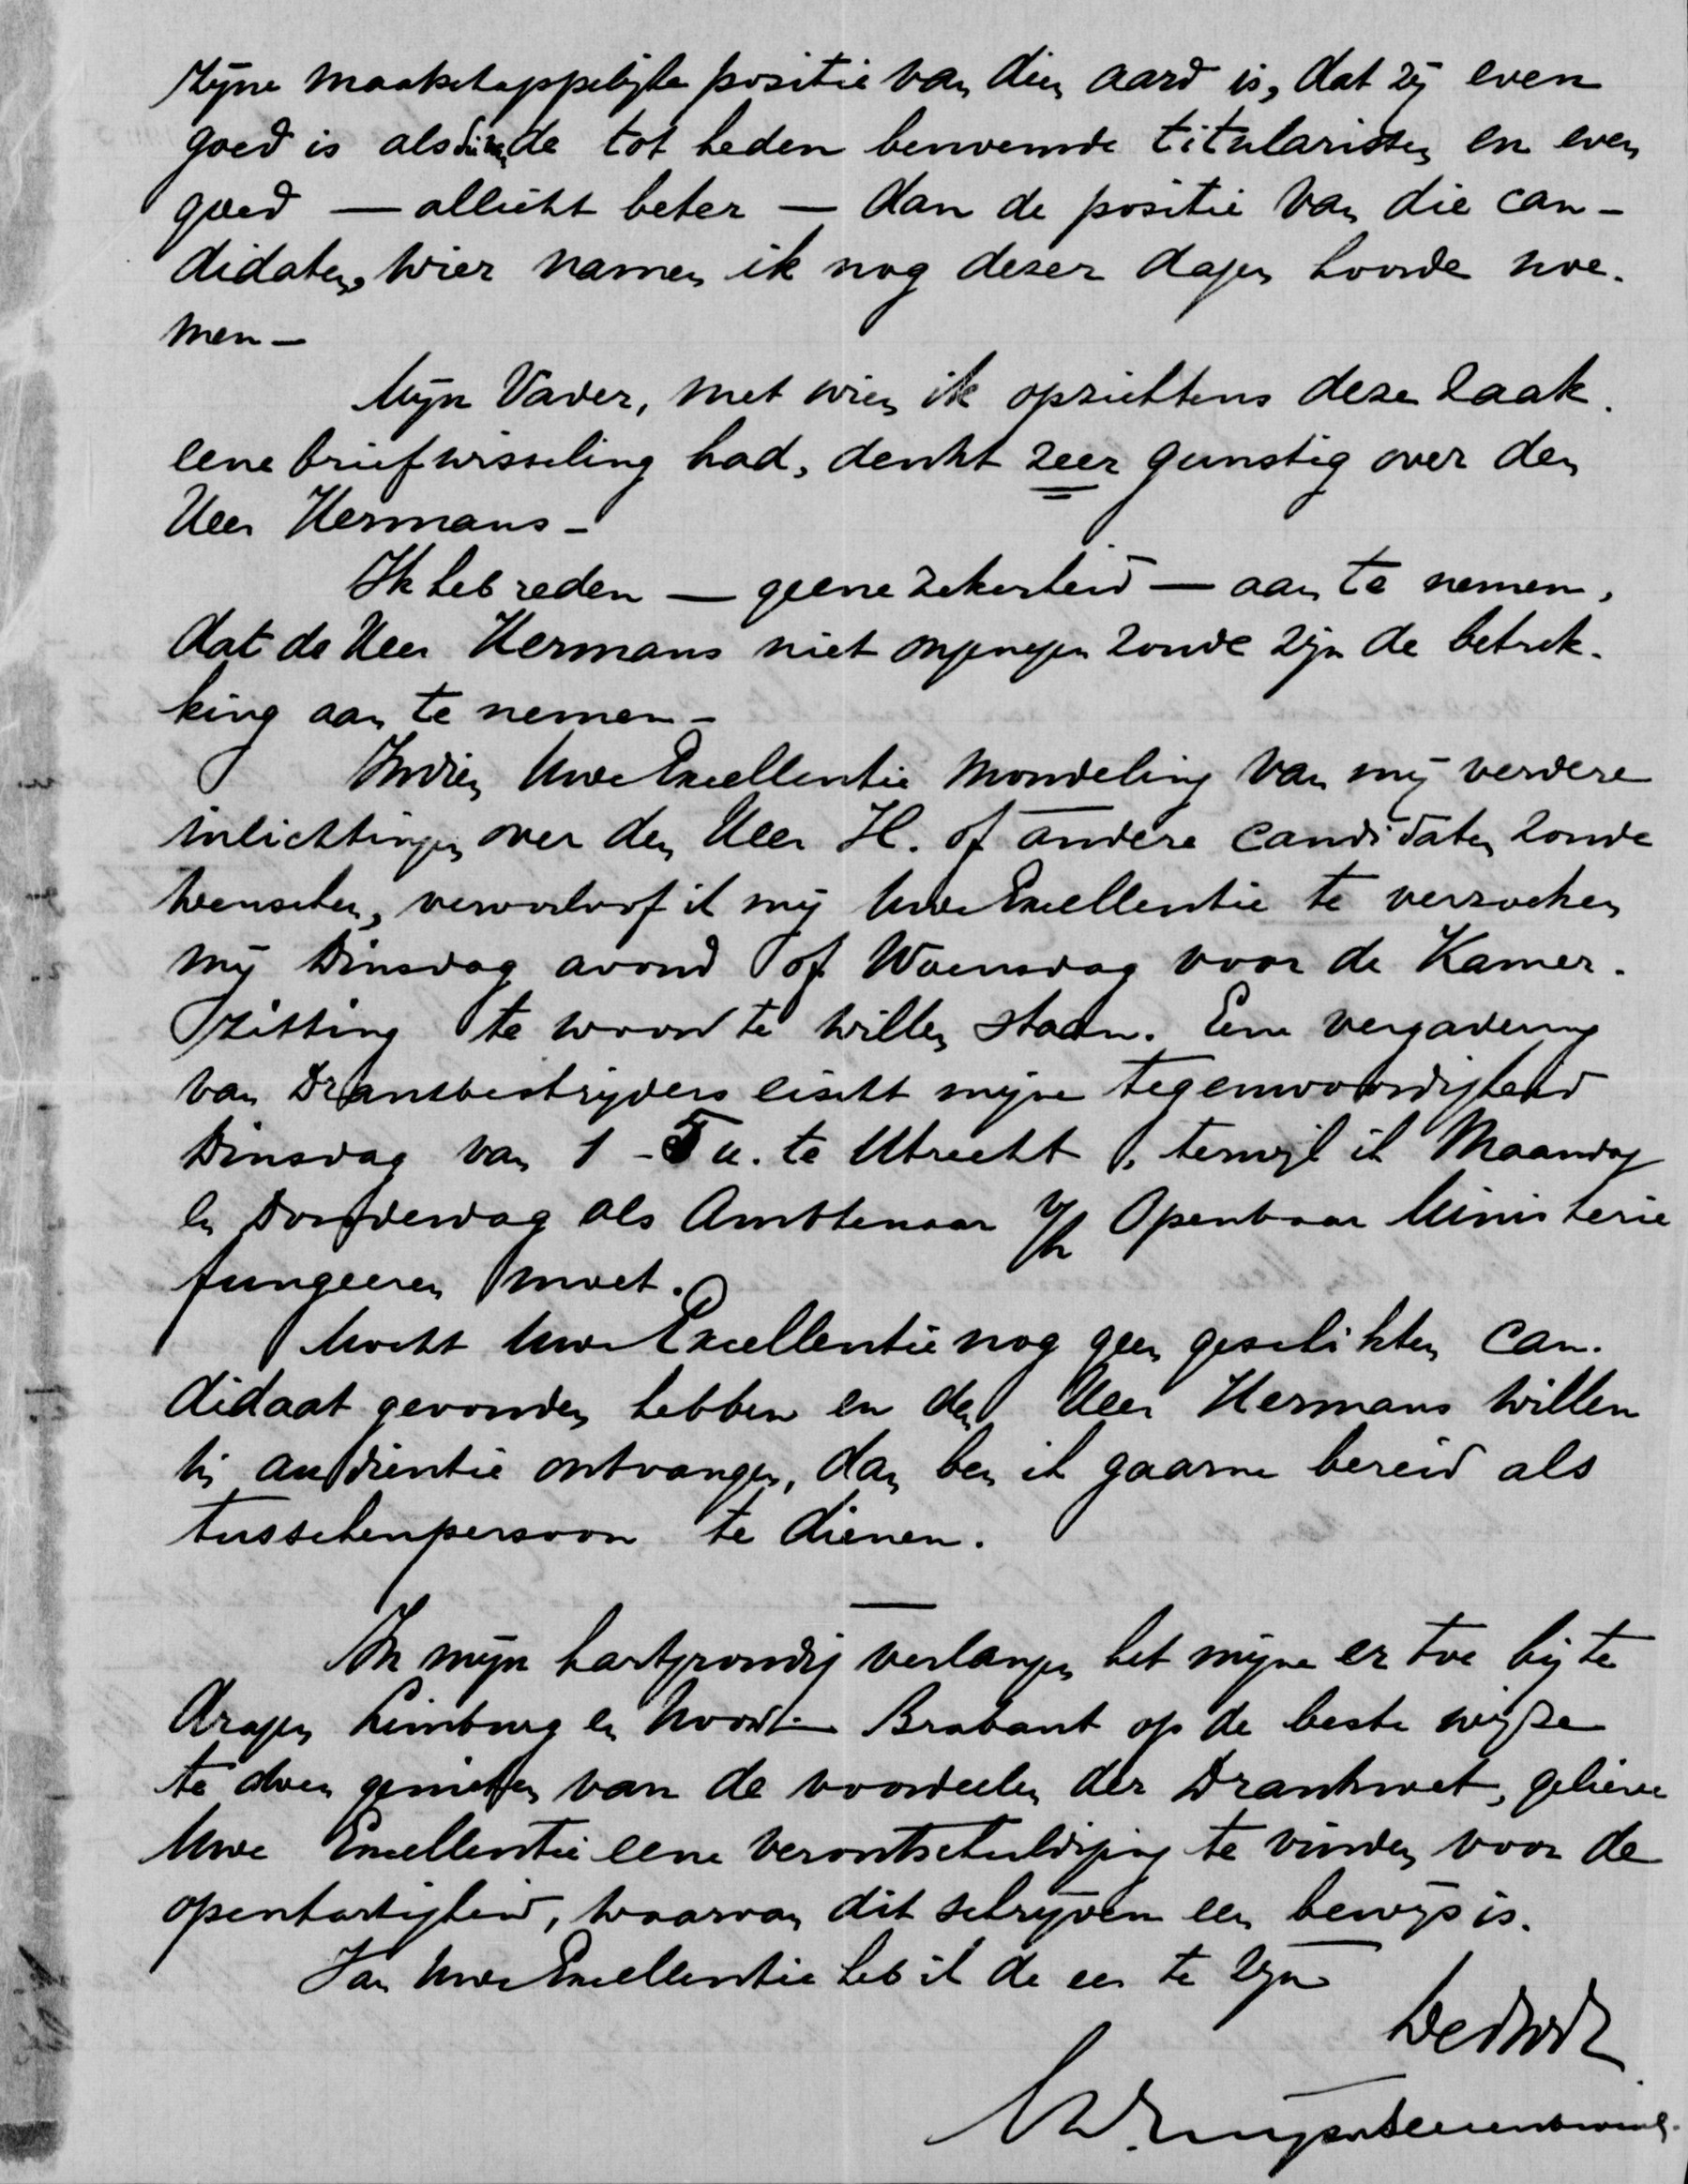 zijne maatschappelijke positie van dien aard is, dat zij even
goed is als die der tot heden benoemde titularissen en even
goed — allicht beter — dan de positie van die can-
didaten, wier namen ik nog dezer dagen hoorde noe-
men —
Mijn Vader, met wien ik opzichtens deze zaak
eene briefwisseling had, denkt zeer gunstig over den
Heer Hermans —
Ik heb reden — geene zekerheid — aan te nemen,
dat de Heer Hermans niet ongenegen zoude zijn de betrek-
king aan te nemen —
Indien Uwe Excellentie mondeling van mij verdere
inlichtingen over den Heer H. of andere candidaten zoude
wenschen, veroorloof ik mij Uwe Excellentie te verzoeken
mij Dinsdag avond of Woensdag voor de Kamer-
zitting te woord te willen staan. Eene vergadering
van Drankbestrijders eischt mijne tegenwoordigheid
Dinsdag van 1 - 5 u. te Utrecht, terwijl ik Maandag
en Donderdag als Ambtenaar v/h Openbaar Ministerie
fungeeren moet.
Mocht Uwe Excellentie nog geen geschikten can-
didaat gevonden hebben en den Heer Hermans willen
in audientie ontvangen, dan ben ik gaarne bereid als
tusschenpersoon te dienen.
In mijn hartgrondig verlangen het mijne er toe bij te
dragen Limburg en Noord-Brabant op de beste wijze
te doen genieten van de voordeelen der Drankwet, gelieve
Uwe Excellentie eene verontschuldiging te vinden voor de
openhartigheid, waarvan dit schrijven een bewijs is.
Van Uwe Excellentie heb ik de eer te zijn
Ruijs de Beerenbrouck.